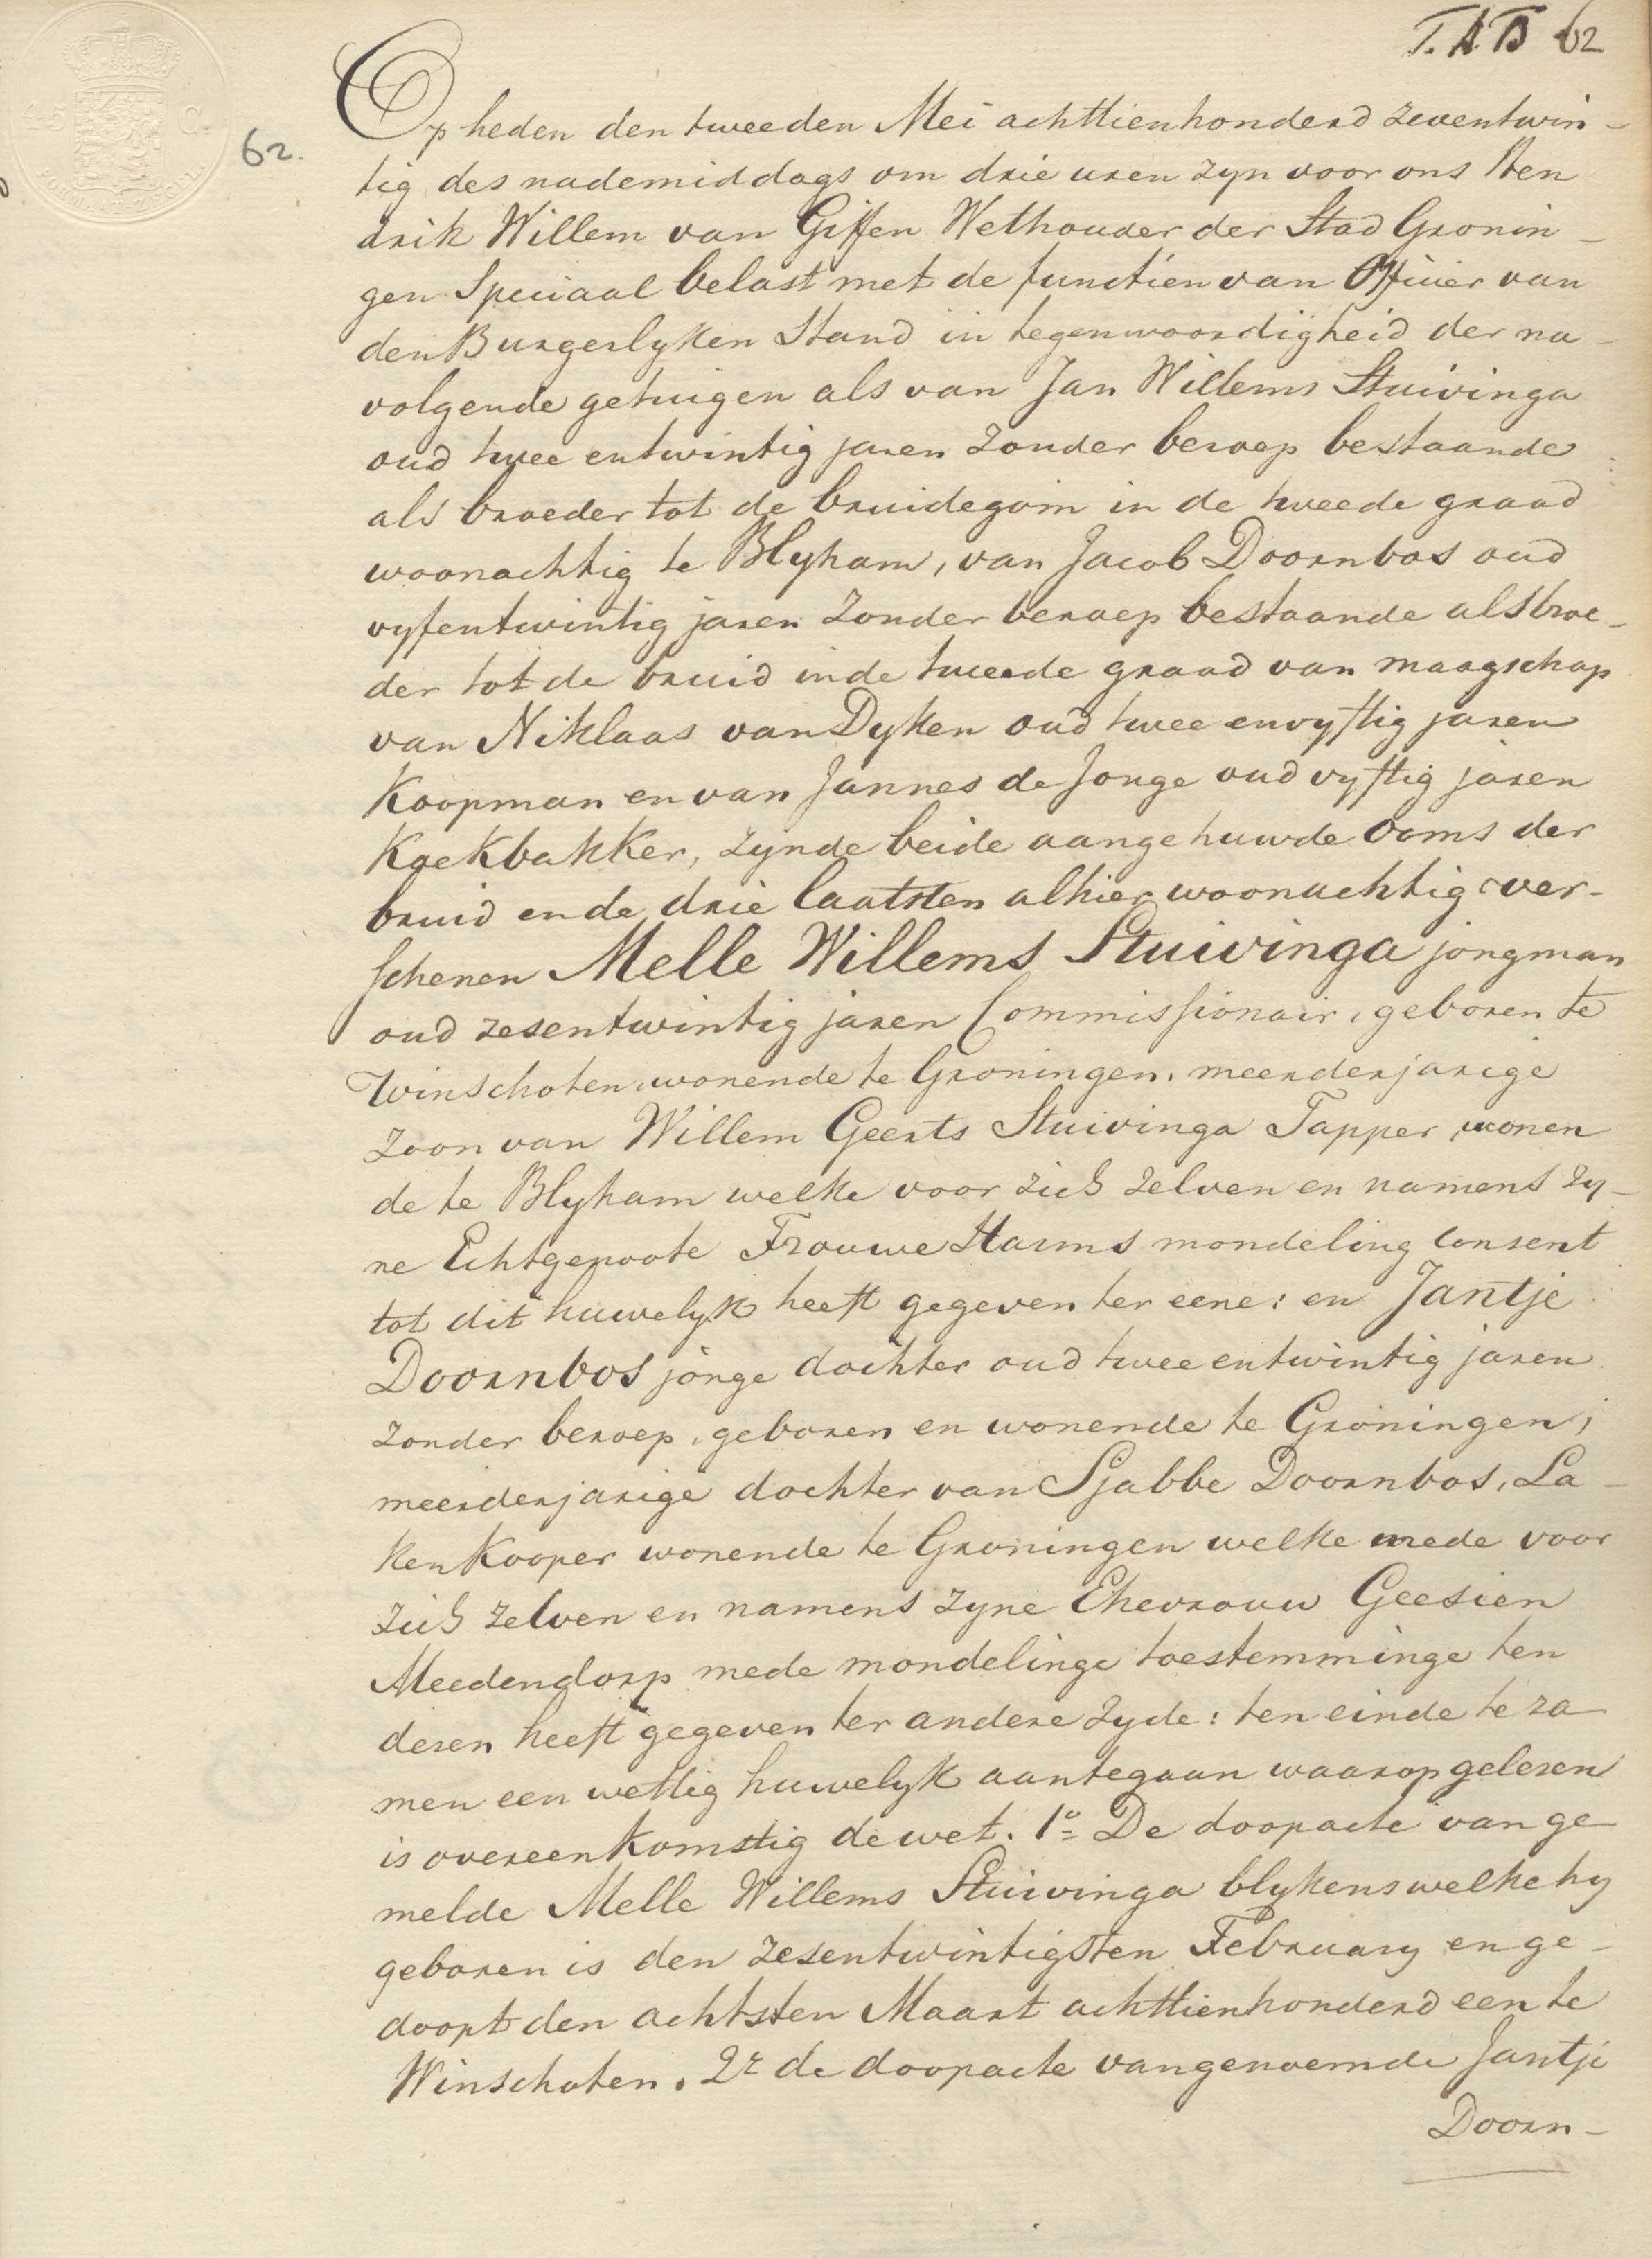 T. A. B 62
62.
Op heden den tweeden Mei achttienhonderd zeventwin-
tig des nademiddags om drie uren zyn voor ons Hen
drik Willem van Giffen Wethouder der Stad Gronin-
gen Speciaal belast met de functien van Officier van
den Burgerlyken Stand in tegenwoordigheid der na-
volgende getuigen als van Jan Willems Stuivinga
oud twee entwintig jaren zonder beroep bestaande
als broeder tot de bruidegom in de tweede graad
woonachtig te Blyham, van Jacob Doornbos oud
vyfentwintig jaren zonder beroep bestaande als broe-
der tot de bruid in de tweede graad van maagschap
van Niklaas van Dyken oud twee envyftig jaren
Koopman en van Jannes de Jonge oud vyftig jaren
Koekbakker, zynde beide aangehuwde ooms der
bruid en de drie laatsten alhier woonachtig ver-
schenen Melle Willems Stuivinga jongman
oud zesentwintig jaren Commissionair, geboren te
Winschoten, wonende te Groningen, meerderjarige
zoon van Willem Geerts Stuivinga Tapper wonen
de te Blyham welke voor zich zelven en namens zy-
ne Echtgenoote Frouwe Harms mondeling consent
tot dit huwelyk heeft gegeven ter eene: en Jantje
Doornbos jonge dochter oud twee entwintig jaren
zonder beroep, geboren en wonende te Groningen,
meerderjarige dochter van Sjabbe Doornbos, La-
ken Kooper wonende te Groningen welke mede voor
zich zelven en namens zyne Ehevrouw Geesien
Meedendorp mede mondelinge toestemminge ten
dezen heeft gegeven ter andere zyde: ten einde te za-
men een wettig huwelyk aantegaan waarop gelezen
is overeenkomstig de wet. 1º De doopacte van ge-
melde Melle Willems Stuivinga blykens welke hy
geboren is den zesentwintigsten February en ge-
doopt den achtsten Maart achttienhonderd een te
Winschoten. 2º de doopacte van genoemde Jantje
Doorn-